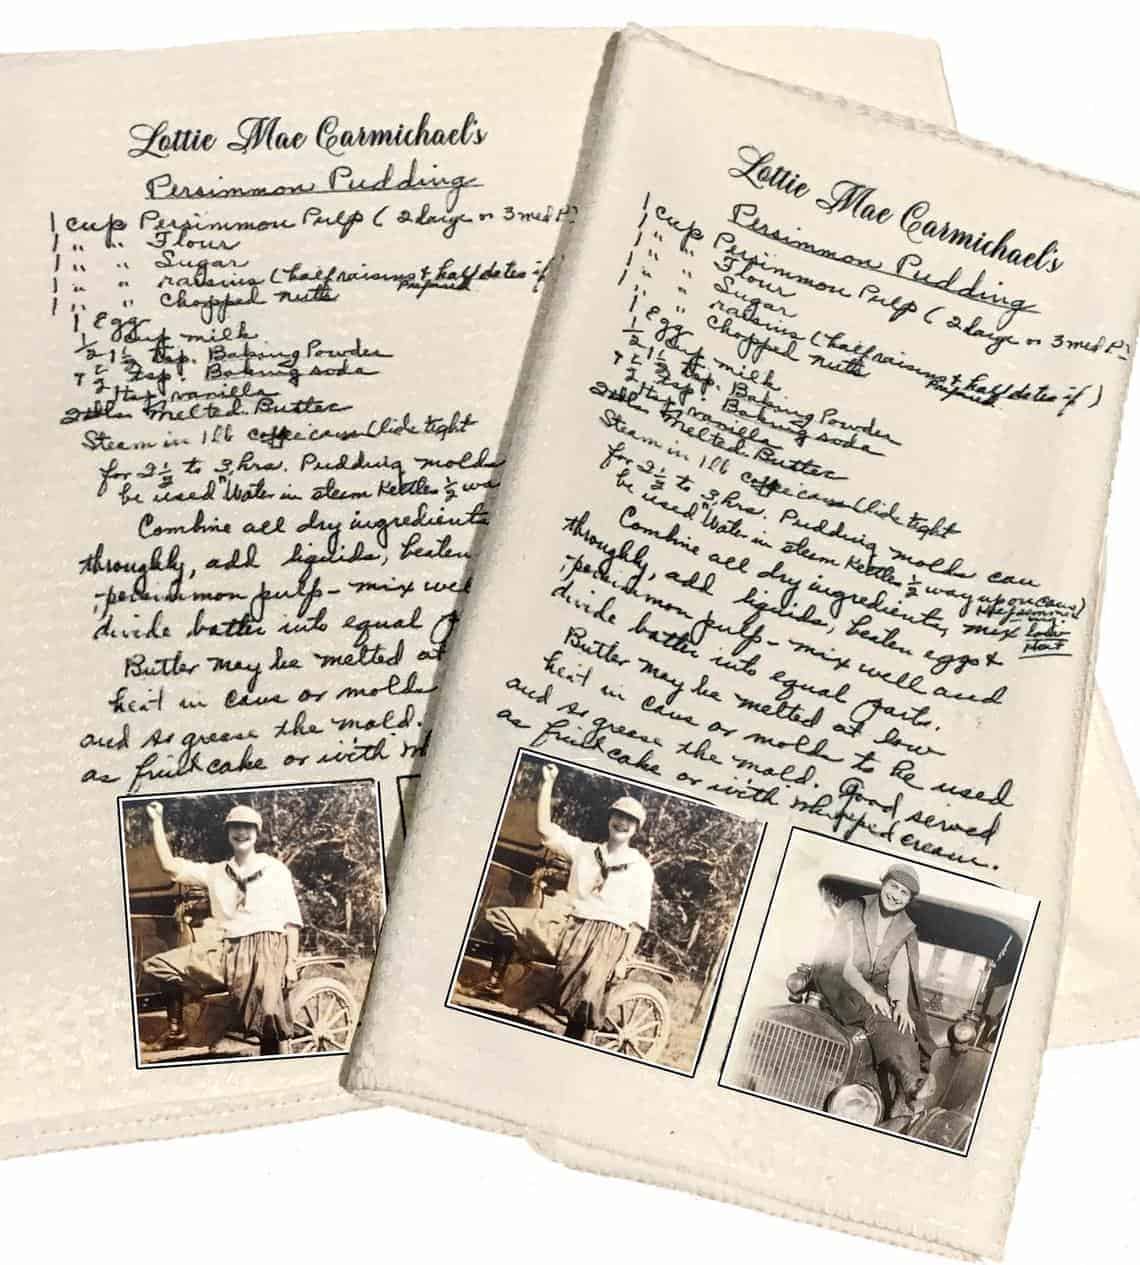 Lottie Mae Carmichael's
Persimmon Pudding
1 cup Persimmon Pulp ( 2 large or 3 med P.
1 " " Flour
1 " " Sugar
1 " " raisins (half raisins & half dates if
Prepared
1 " " Chopped nuts
1 Egg
1/2 Cup milk
1 1/2 tsp. Baking Powder
1/2 tsp. Baking soda
1/2 tsp vanilla
Melted Butter
Steam in 1 lb coffee cans (lids tight
for 2 1/2 to 3 hrs. Pudding molds
be used Water in steam Kettles 1/2 wa
Combine all dry ingredients
throughly, add liquids, beaten
persimmon pulp - mix wel
divide batter into equal p
Butter may be melted at
heat in cans or molds
and so grease the mold.
as fruit cake or with wh
Lottie Mae Carmichael's
Persimmon Pudding
1 cup Persimmon Pulp ( 2 large or 3 med P.
1 " " Flour
1 " " Sugar
1 " " raisins (half raisins & half dates if )
Prepared
1 " " Chopped nuts
1 Egg
1/2 Cup milk
1 1/2 tsp. Baking Powder
1/2 tsp. Baking soda
1/2 tsp vanilla
Melted Butter
Steam in 1 lb coffee cans (lids tight
for 2 1/2 to 3 hrs. Pudding molds can
be used Water in steam Kettles 1/2 way up on cans)
Combine all dry ingredients, mix
throughly, add liquids, beaten eggs &
persimmon pulp - mix well and
divide batter into equal parts.
Butter may be melted at low
heat in cans or molds to be used
and so grease the mold. Good served
as fruit cake or with whipped cream.